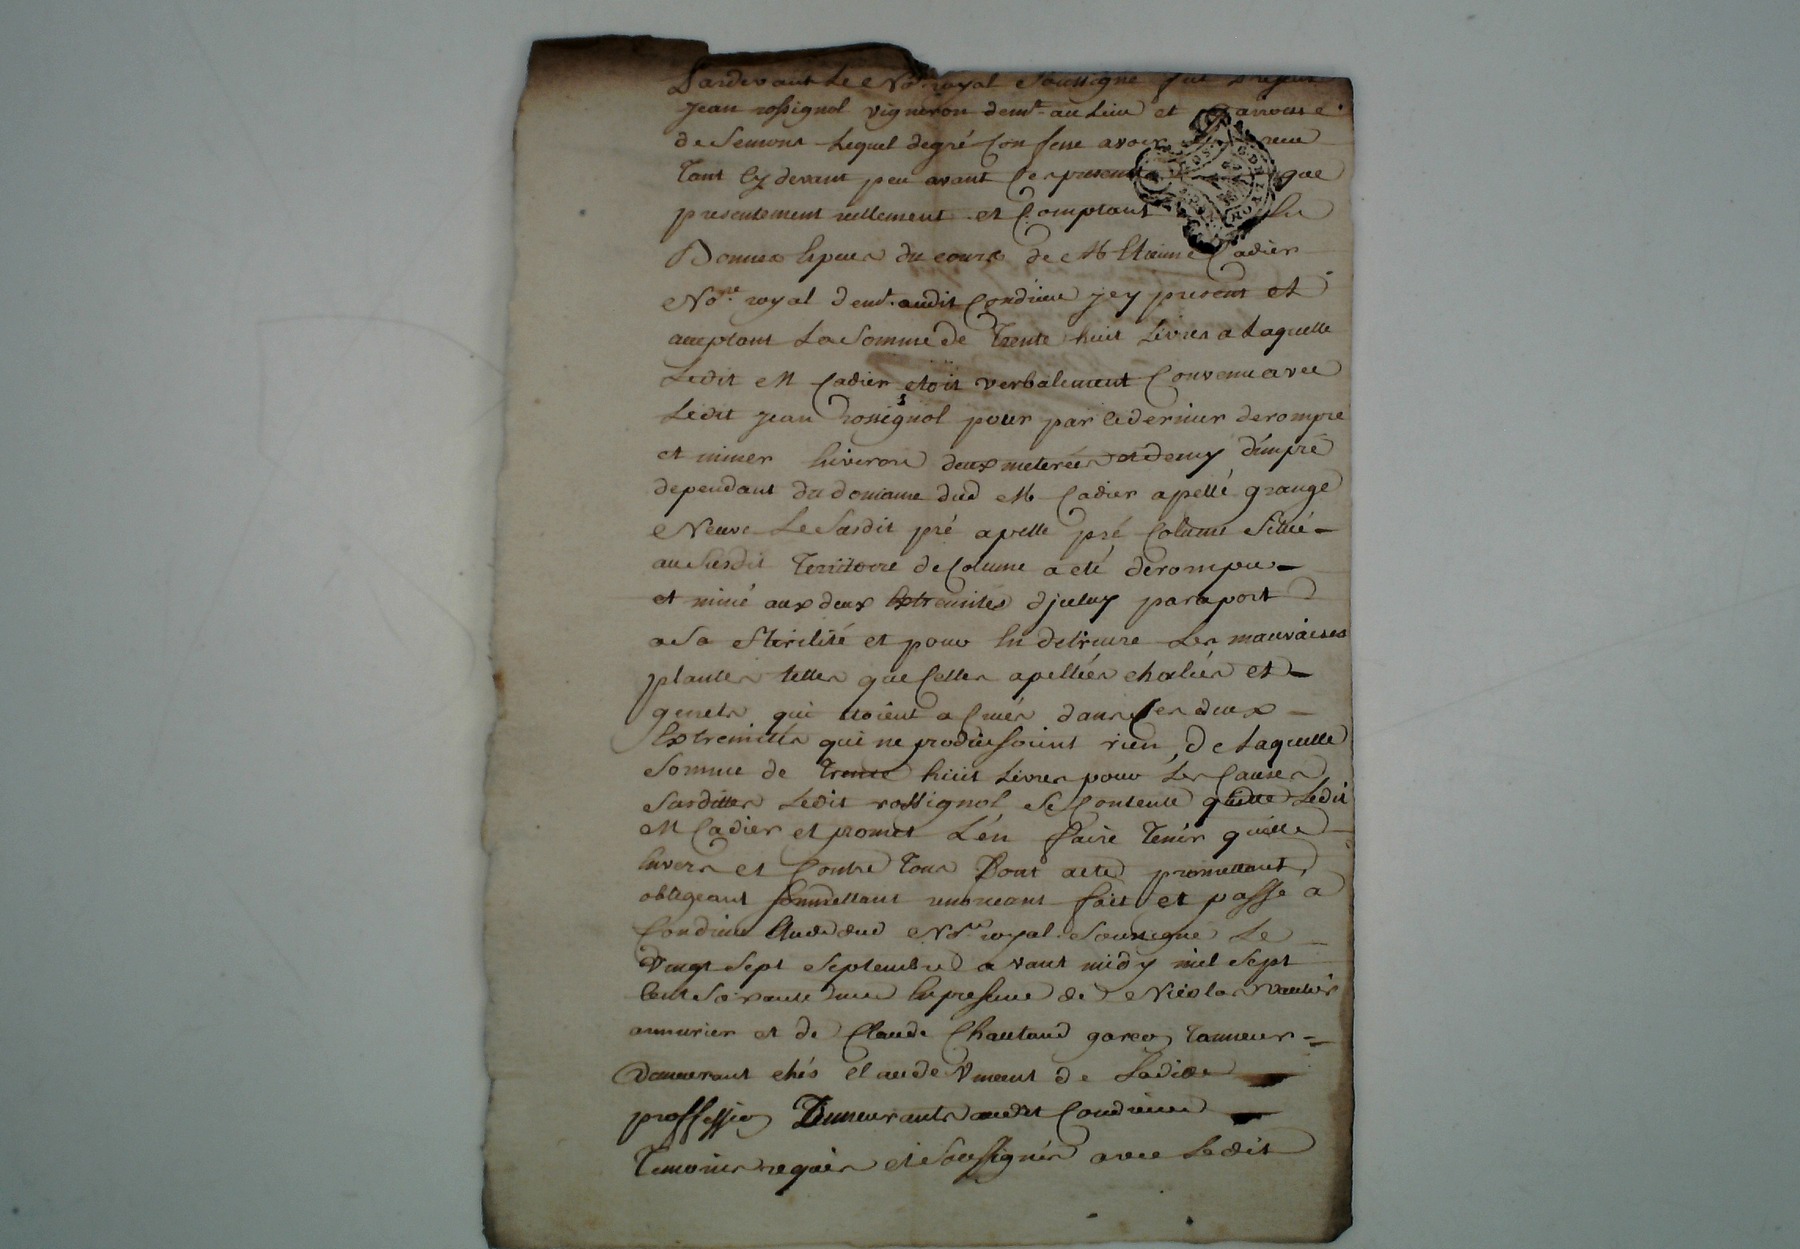 Pardevant Le No.re royal Soussigné fut present
jean rossignol vigneron demt. au Lieu et Parroisse
de Semons Lequel degré Confesse avoir receu
Tant Cy devant peu avant Ces presentes que
presentement reellement et Comptant En
Bonnes Especes du cours de Me Etienne Cadier
No.re royal demt. audit Condrieu jcy present et
acceptant La Somme de Trente huit Livres a Laquelle
Ledit Me Cadier etoit verbalement Convenu avec
Ledit jean rossignol pour par Ce dernier derompre
et miner Environ deux meterées et demy d'un pré
dependant du domaine dud Me Cadier apellé grange
Neuve Le Susdit pré apellé pré Colume Situé
au Susdit Territoire de Colume a eté derompu
et miné aux deux Extremités d'jceluy par aport
a Sa Sterilité et pour En detruire Les mauvaises
plantes telles que Celles apellées chaliés et
genets qui etoient a Crues dans Ces deux
Extremités qui ne produissoient rien, de Laquelle
Somme de Trente huit Livres pour Les Causes
Susdittes Ledit rossignol Se Contente quitte Ledit
Me Cadier et promet L'en faire Tenir quitte
Envers et Contre Tous Dont acte promettant
obligeant soumettant renonçant fait et passé a
Condrieu Etude dud No.re royal Soussigné Le
Vingt Sept Septembre avant midy mil Sept
Cent Soixante En presence de Nicolas vautier
armurier et de Claude Chautand garçon Tanneur
Demeurant chés Claude Vincent de Ladite
proffession Demeurants audit Condrieu
Temoins requis et Soussignés avec Ledit